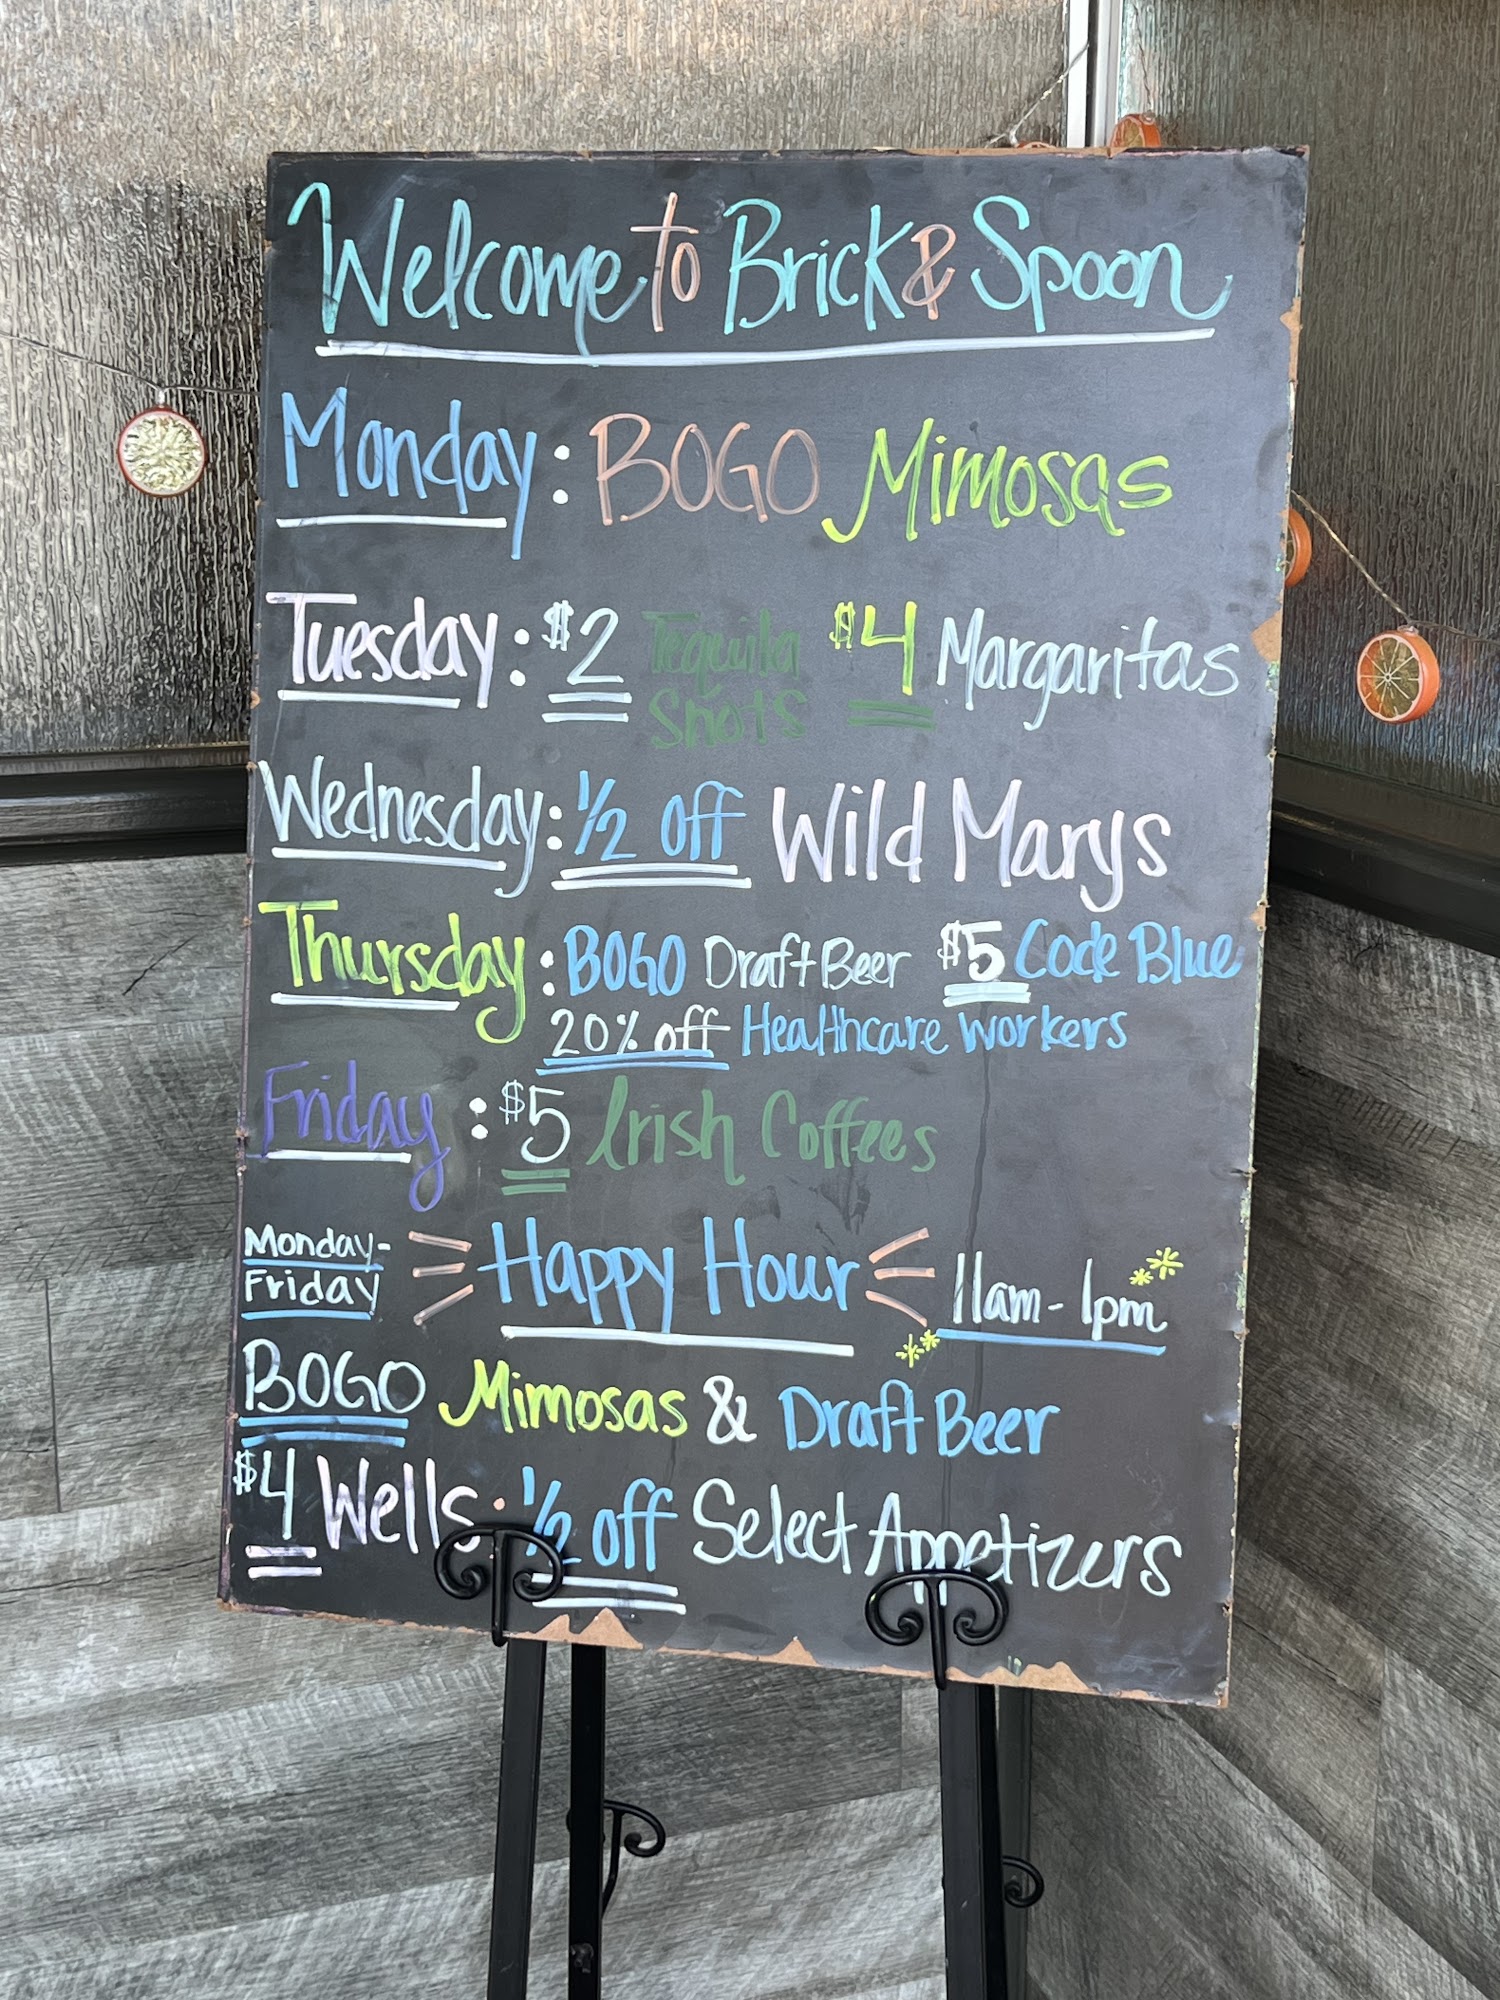 Welcome to Brick & Spoon
Monday: BOGO Mimosas
Tuesday: $2 Tequila Shots $4 Margaritas
Wednesday: 1/2 off Wild Marys
Thursday: BOGO Draft Beer $5 Code Blue
20% off Healthcare workers
Friday: $5 Irish Coffees
Monday-
Friday
Happy Hour 11am-1pm
BOGO Mimosas & Draft Beer
$4 Wells : 1/2 off Select Appetizers